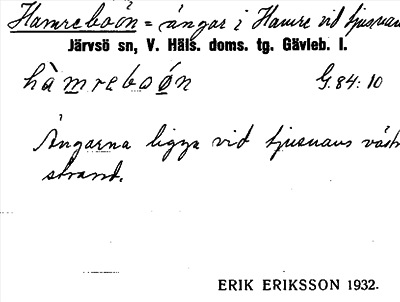 Hamreboön = ängar i Hamre vid Ljusnan
Järvsö sn, V. Häls. doms. tg. Gävleb. l.
hàmreboọn G. 84: 10
Ängarna ligga vid Ljusnans västr
strand.
ERIK ERIKSSON 1932.